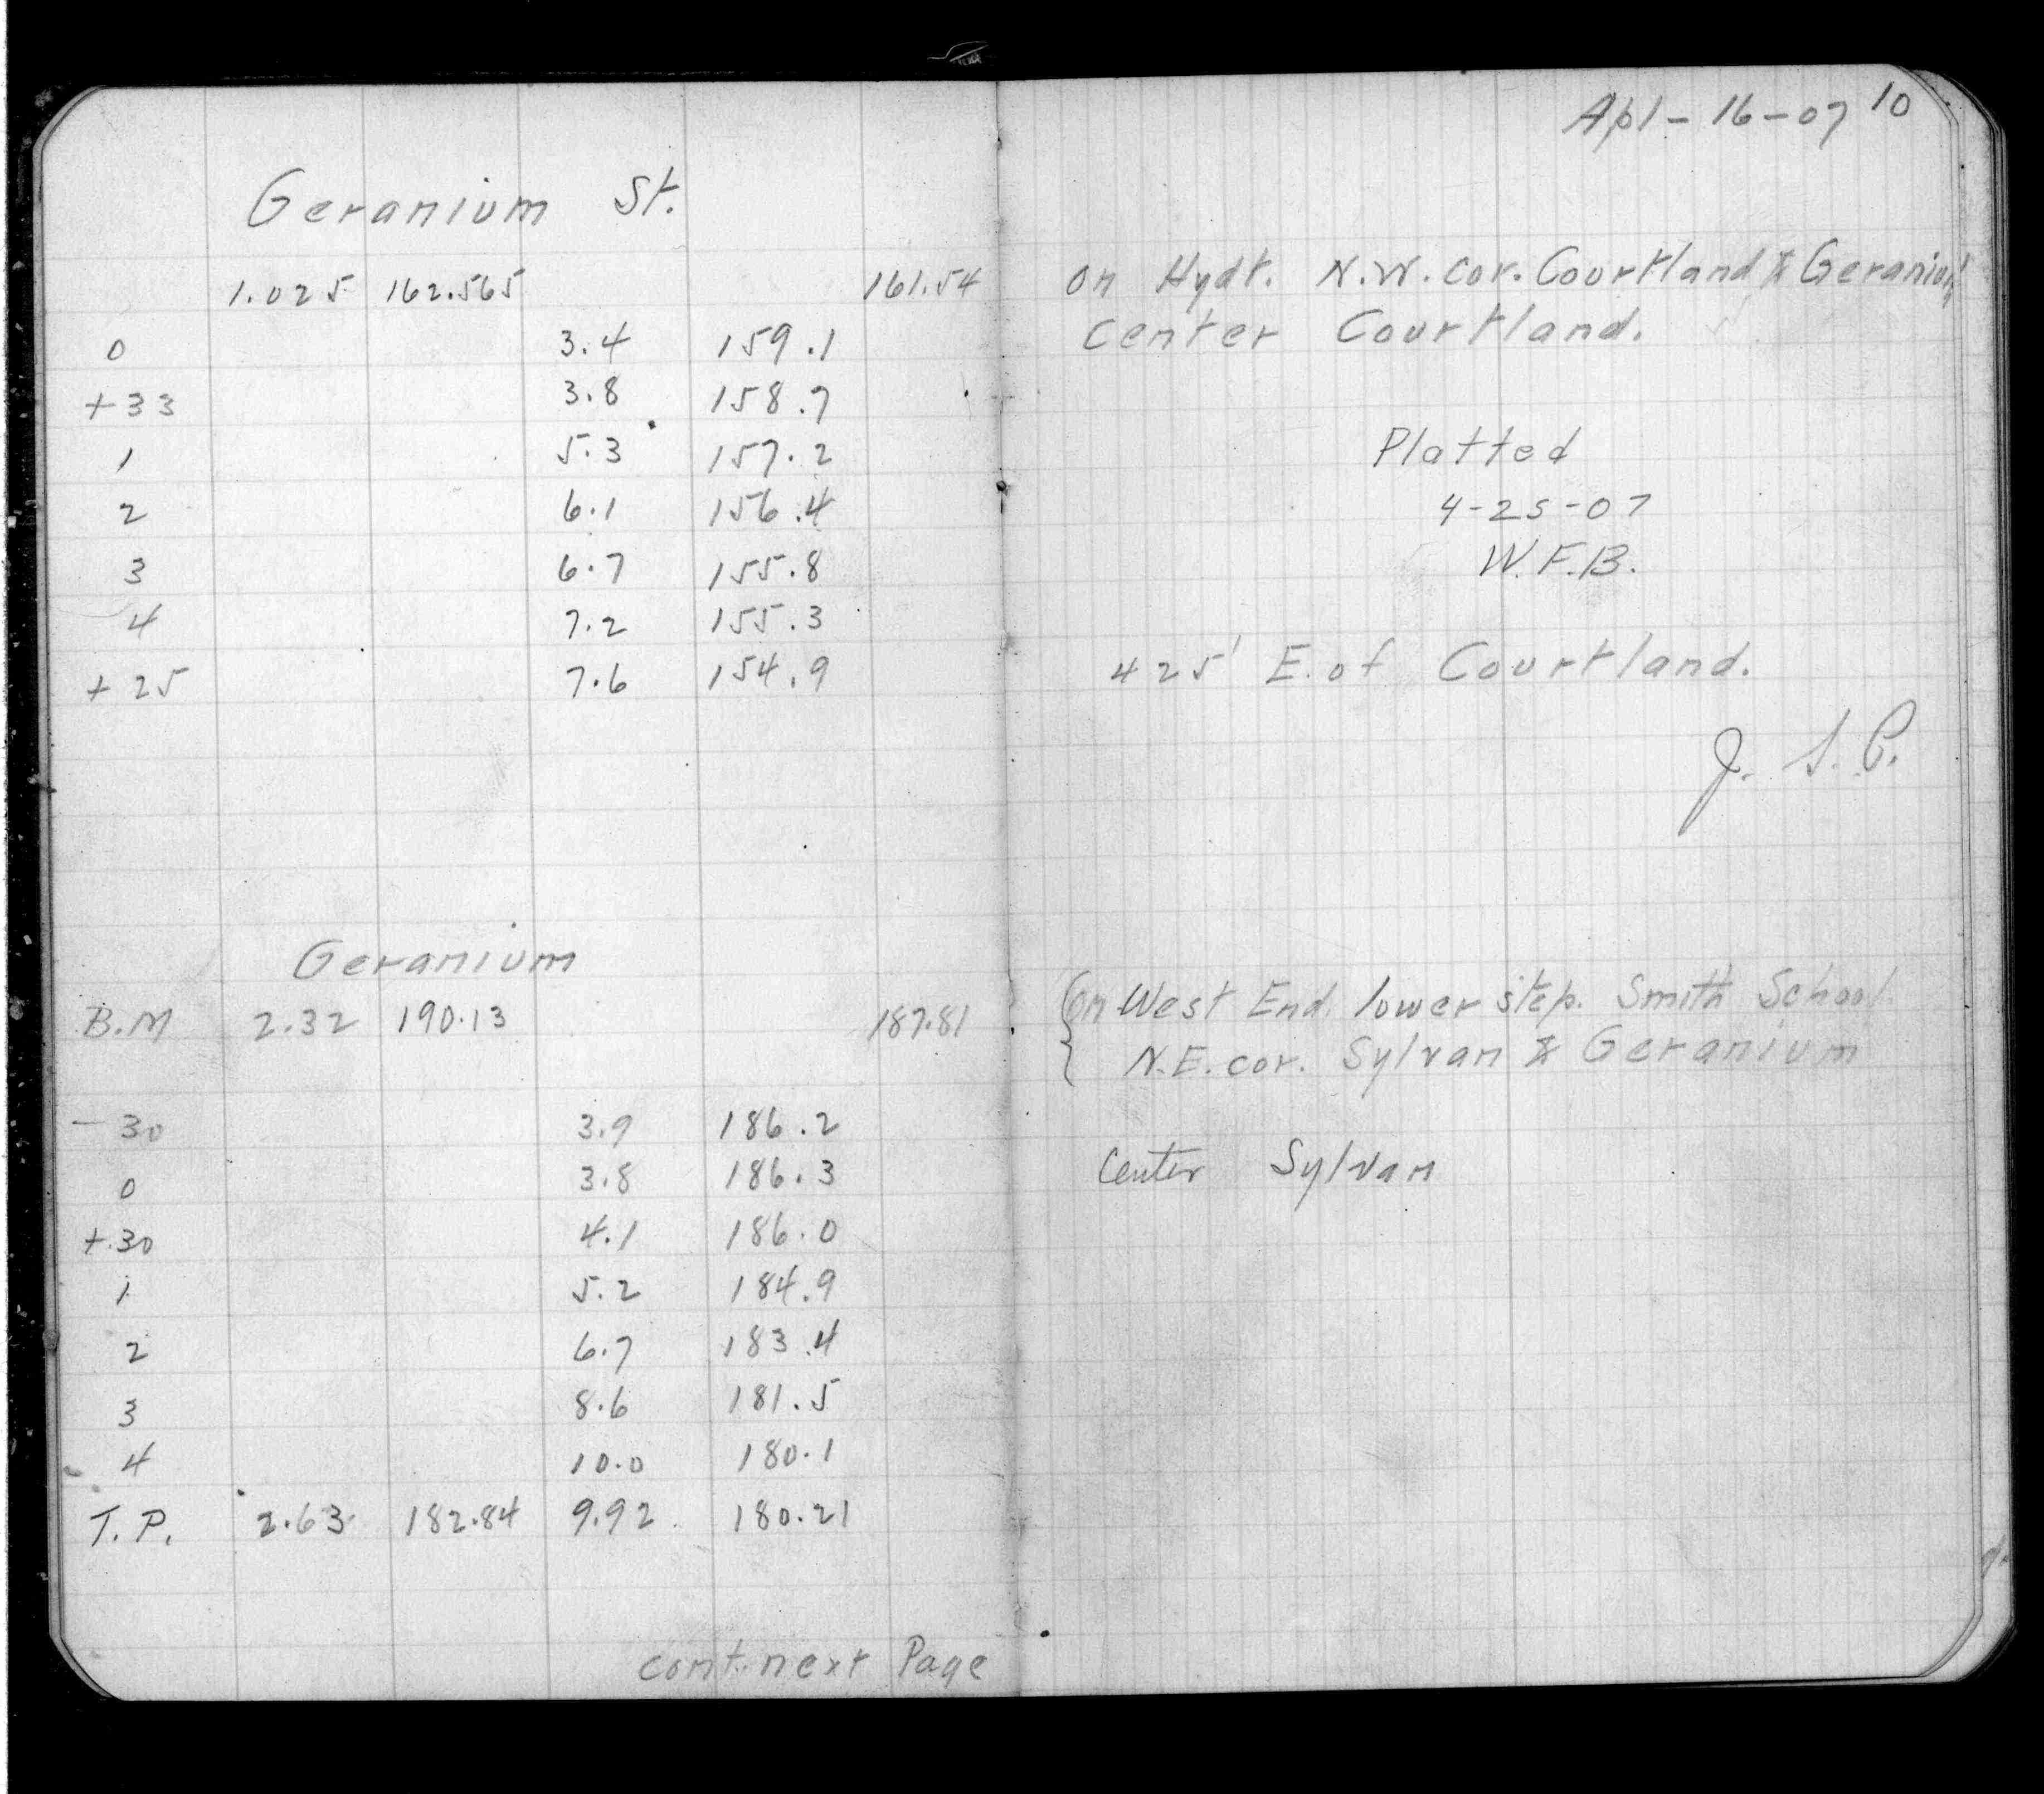 Apl-16-07 10
Geranium St.
1.025 162.565 161.54 on Hydt. N.W. cor. Courtland & Geranium
0 3.4 159.1 Center Courtland.
+33 3.8 158.7
1 5.3 157.2 Platted
2 6.1 156.4 4-25-07
3 6.7 155.8 W.F.B.
4 7.2 155.3
+25 7.6 154.9 425' E. of Courtland.
J. S. P.
Geranium
B.M 2.32 190.13 187.81 On West End lower step. Smith School
N.E. cor. Sylvan & Geranium
-30 3.9 186.2
0 3.8 186.3 Center Sylvan
+30 4.1 186.0
1 5.2 184.9
2 6.7 183.4
3 8.6 181.5
4 10.0 180.1
T.P. 2.63 182.84 9.92 180.21
cont. next Page